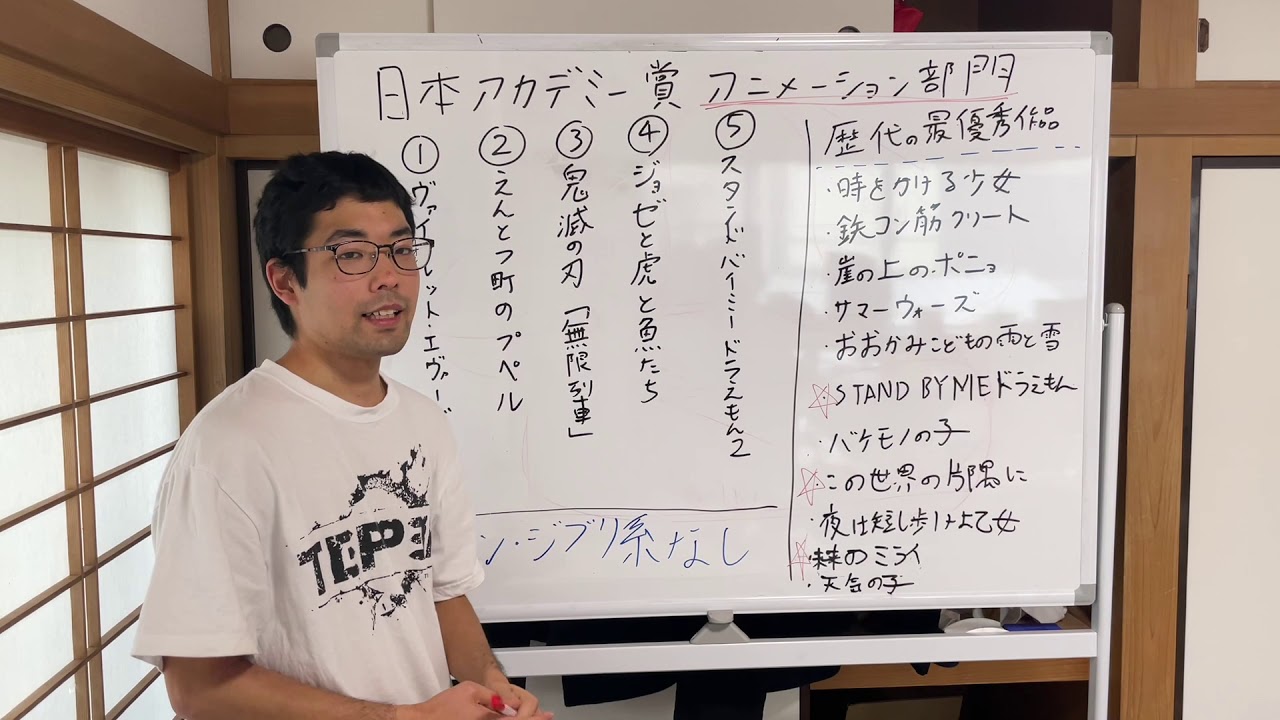 日本アカデミー賞 アニメーション部門
①ヴァイオレット・エヴァー
②えんとつ町のプペル
③鬼滅の刃「無限列車」
④ジョゼと虎と魚たち
⑤スタンドバイミードラえもん2
ン・ジブリ系なし
歴代の最優秀作品
・時をかける少女
・鉄コン筋クリート
・崖の上のポニョ
・サマーウォーズ
・おおかみこどもの雨と雪
☆・STAND BY MEドラえもん
・バケモノの子
☆・この世界の片隅に
・夜は短し歩けよ乙女
☆・未来のミライ
・天気の子